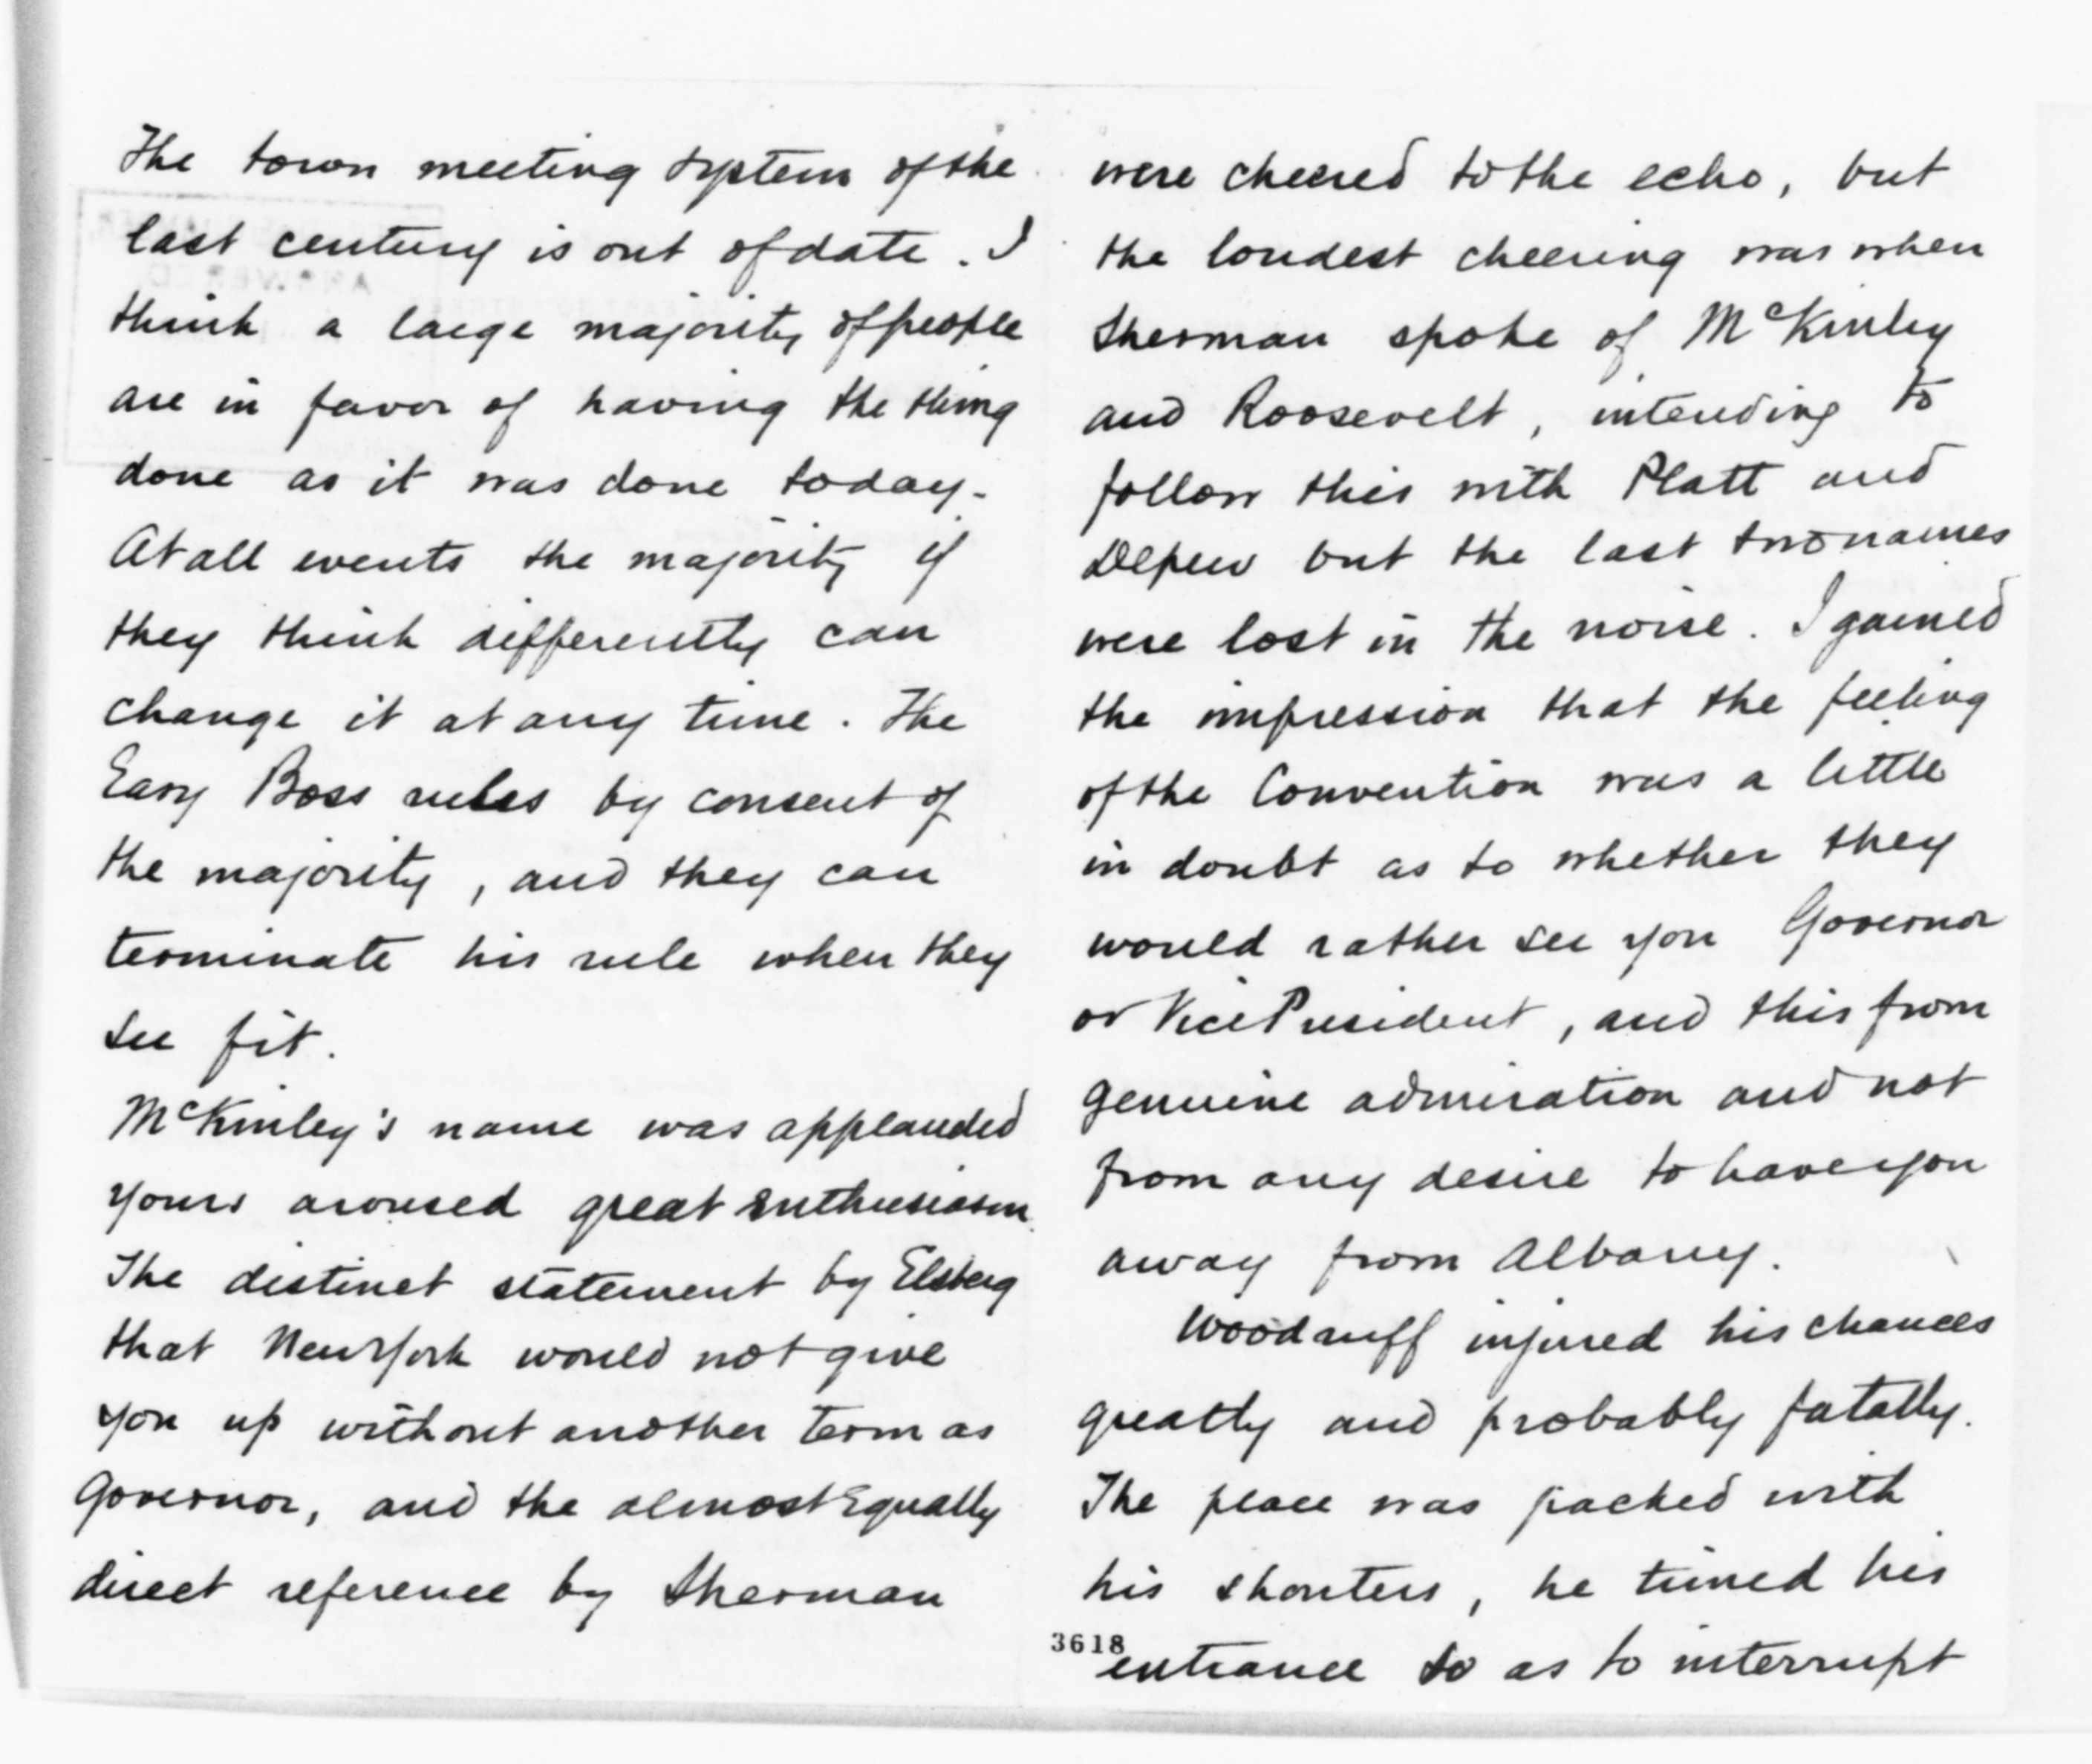 The town meeting system of the
last century is out of date. I
think a large majority of people
are in favor of having the thing
done as it was done today.
At all events the majority if
they think differently can
change it at any time. The
Easy Boss rules by consent of
the majority, and they can
terminate his rule when they
see fit.
McKinley's name was applauded
yours aroused great enthusiasm.
The distinct statement by Elsberg
that New York would not give
you up without another term as
Governor, and the almost equally
direct reference by Sherman
were cheered to the echo, but
the loudest cheering was when
Sherman spoke of McKinley
and Roosevelt, intending to
follow this with Platt and
Depew but the last two names
were lost in the noise. I gained
the impression that the feeling
of the Convention was a little
in doubt as to whether they
would rather see you Governor
or Vice President, and this from
genuine admiration and not
from any desire to have you
away from Albany.
Woodruff injured his chances
greatly and probably fatally.
The place was packed with
his shouters, he timed his
3618
entrance so as to interrupt